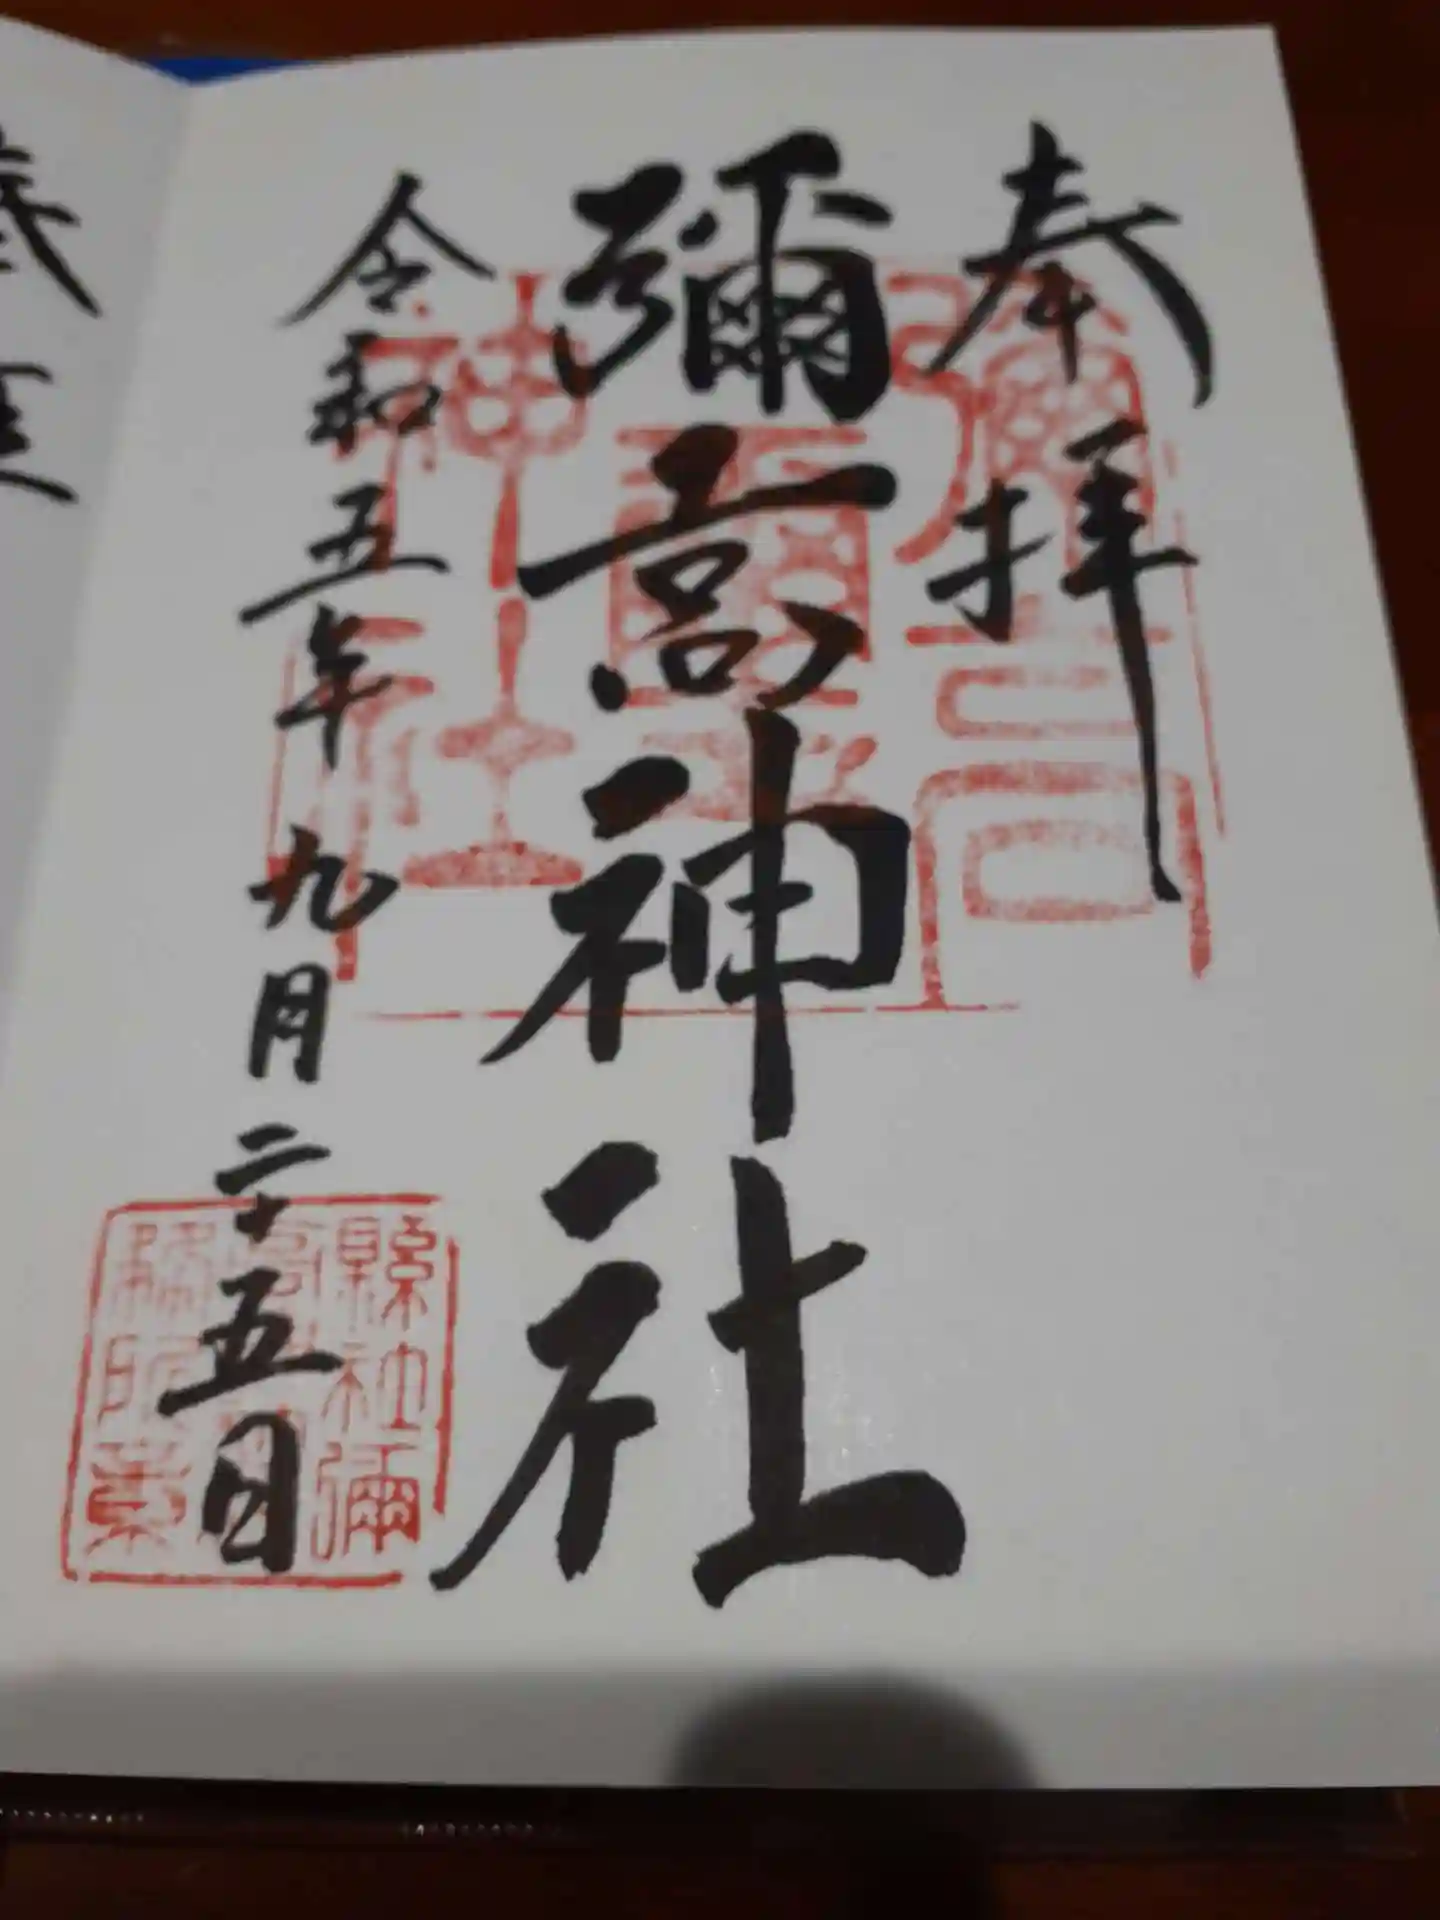 奉拝
彌高神社
令和五年九月二十五日
彌高
神社
縣社彌
務所章